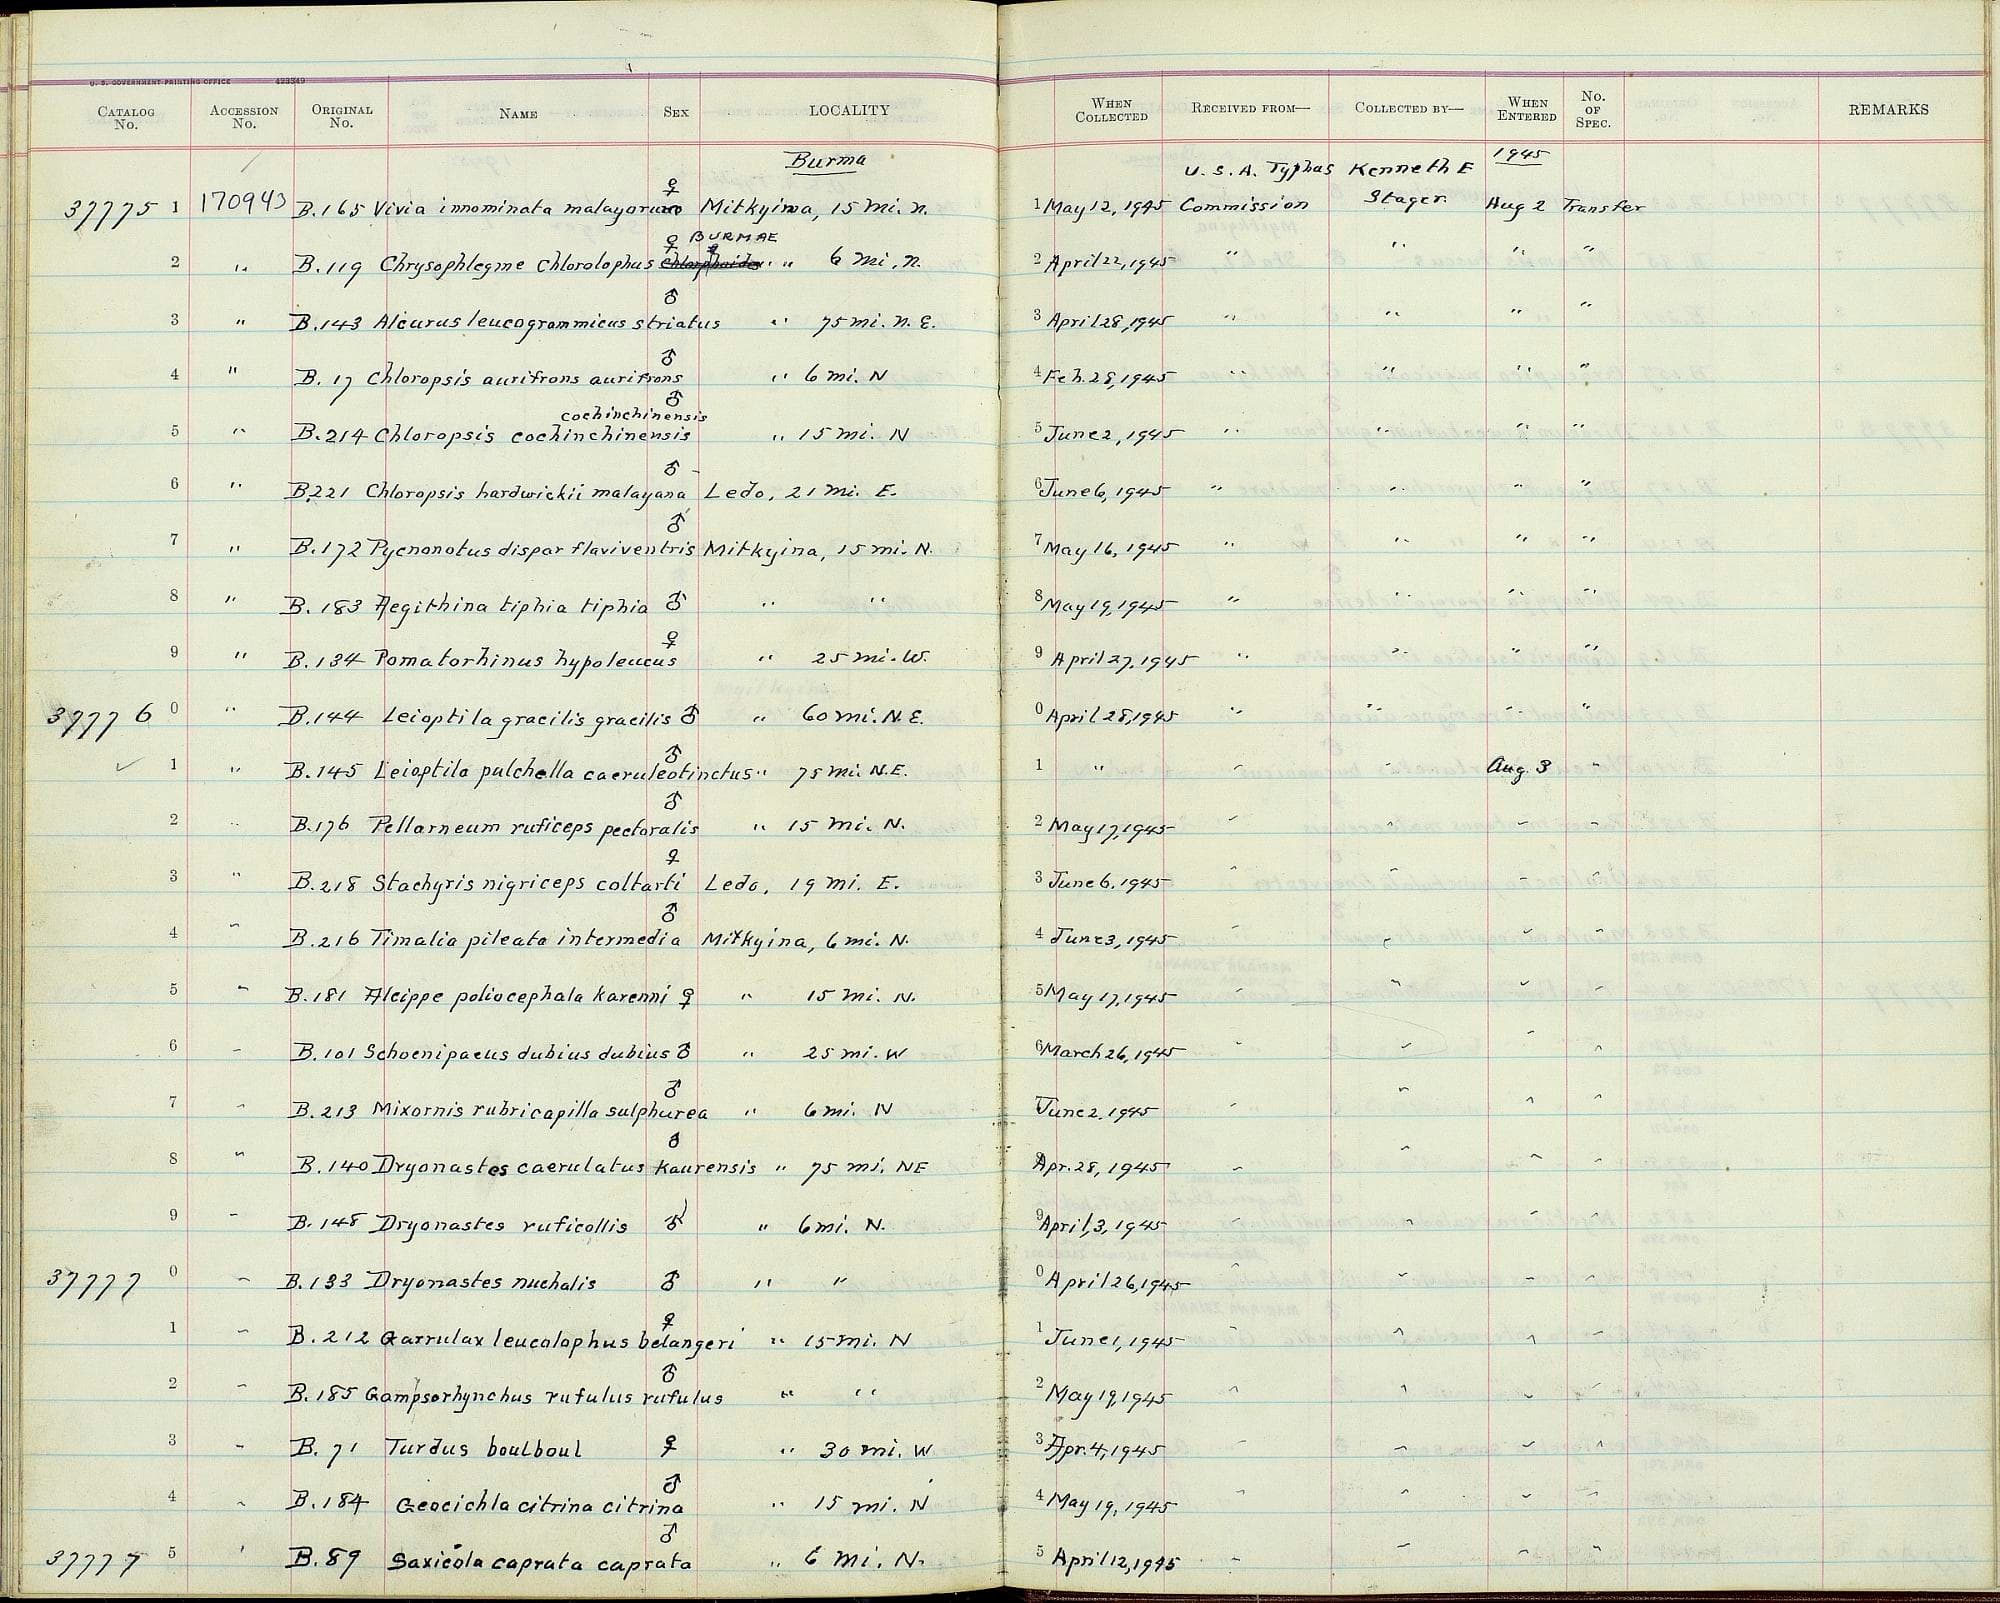 U. S. GOVERNMENT PRINTING OFFICE 423349
CATALOG No. ACCESSION No. ORIGINAL No. NAME SEX LOCALITY WHEN COLLECTED RECEIVED FROM— COLLECTED BY— WHEN ENTERED No. OF SPEC. REMARKS
Burma U. S. A. Typhus Kenneth E 1945
37775 1 170943 B.165 Vivia innominata malayorum ♀ Mitkyina, 15 mi. N. 1 May 12, 1945 Commission Stager Aug 2 Transfer
♀ BURMAE
2 " B.119 Chrysophlegme chlorolophus " " 6 mi. N. 2 April 22, 1945 " " " "
3 " B.143 Alcurus leucogrammicus striatus ♂ " 75 mi. N. E. 3 April 28, 1945 " " " "
4 " B. 17 Chloropsis aurifrons aurifrons ♂ " 6 mi. N 4 Feb. 28, 1945 " " " "
cochinchinensis
5 " B.214 Chloropsis cochinchinensis ♂ " 15 mi. N 5 June 2, 1945 " " " "
6 " B.221 Chloropsis hardwickii malayana ♂ Ledo, 21 mi. E. 6 June 6, 1945 " " " "
7 " B.172 Pycnonotus dispar flaviventris ♂ Mitkyina, 15 mi. N. 7 May 16, 1945 " " " "
8 " B. 183 Aegithina tiphia tiphia ♂ " " 8 May 19, 1945 " " " "
9 " B.134 Pomatorhinus hypoleucus ♀ " 25 mi. W. 9 April 27, 1945 " " " "
37776 0 " B.144 Leioptila gracilis gracilis ♂ " 60 mi. N. E. 0 April 28, 1945 " " " "
✓ 1 " B.145 Leioptila pulchella caeruleotinctus ♂ " 75 mi. N.E. 1 " " " Aug. 3 "
2 " B.176 Pellarneum ruficeps pectoralis ♂ " 15 mi. N. 2 May 17, 1945 " " " "
3 " B.218 Stachyris nigriceps coltarti ♀ Ledo, 19 mi. E. 3 June 6. 1945 " " " "
4 " B.216 Timalia pileata intermedia ♂ Mitkyina, 6 mi. N. 4 June 3, 1945 " " " "
5 " B.181 Alcippe poliocephala karenni ♀ " 15 mi. N. 5 May 17, 1945 " " " "
6 " B.101 Schoenipaeus dubius dubius ♂ " 25 mi. W 6 March 26, 1945 " " " "
7 " B.213 Mixornis rubricapilla sulphurea ♂ " 6 mi. N June 2. 1945 " " " "
8 " B.140 Dryonastes caerulatus kaurensis ♂ " 75 mi. NE Apr. 28, 1945 " " " "
9 " B.148 Dryonastes ruficollis ♂ " 6 mi. N. 9 April, 3, 1945 " " " "
37777 0 " B.133 Dryonastes nuchalis ♂ " " 0 April 26, 1945 " " " "
1 " B. 212 Garrulax leucolophus belangeri ♀ " 15 mi. N 1 June 1, 1945 " " " "
2 " B. 185 Gampsorhynchus rufulus rufulus ♂ " " 2 May 19, 1945 " " " "
3 " B. 71 Turdus boulboul ♀ " 30 mi. W 3 Apr. 4, 1945 " " " "
4 " B. 184 Geocichla citrina citrina ♂ " 15 mi. N 4 May 19, 1945 " " " "
37777 5 " B. 89 Saxicola caprata caprata ♂ " 6 mi. N. 5 April 12, 1945 " " " "